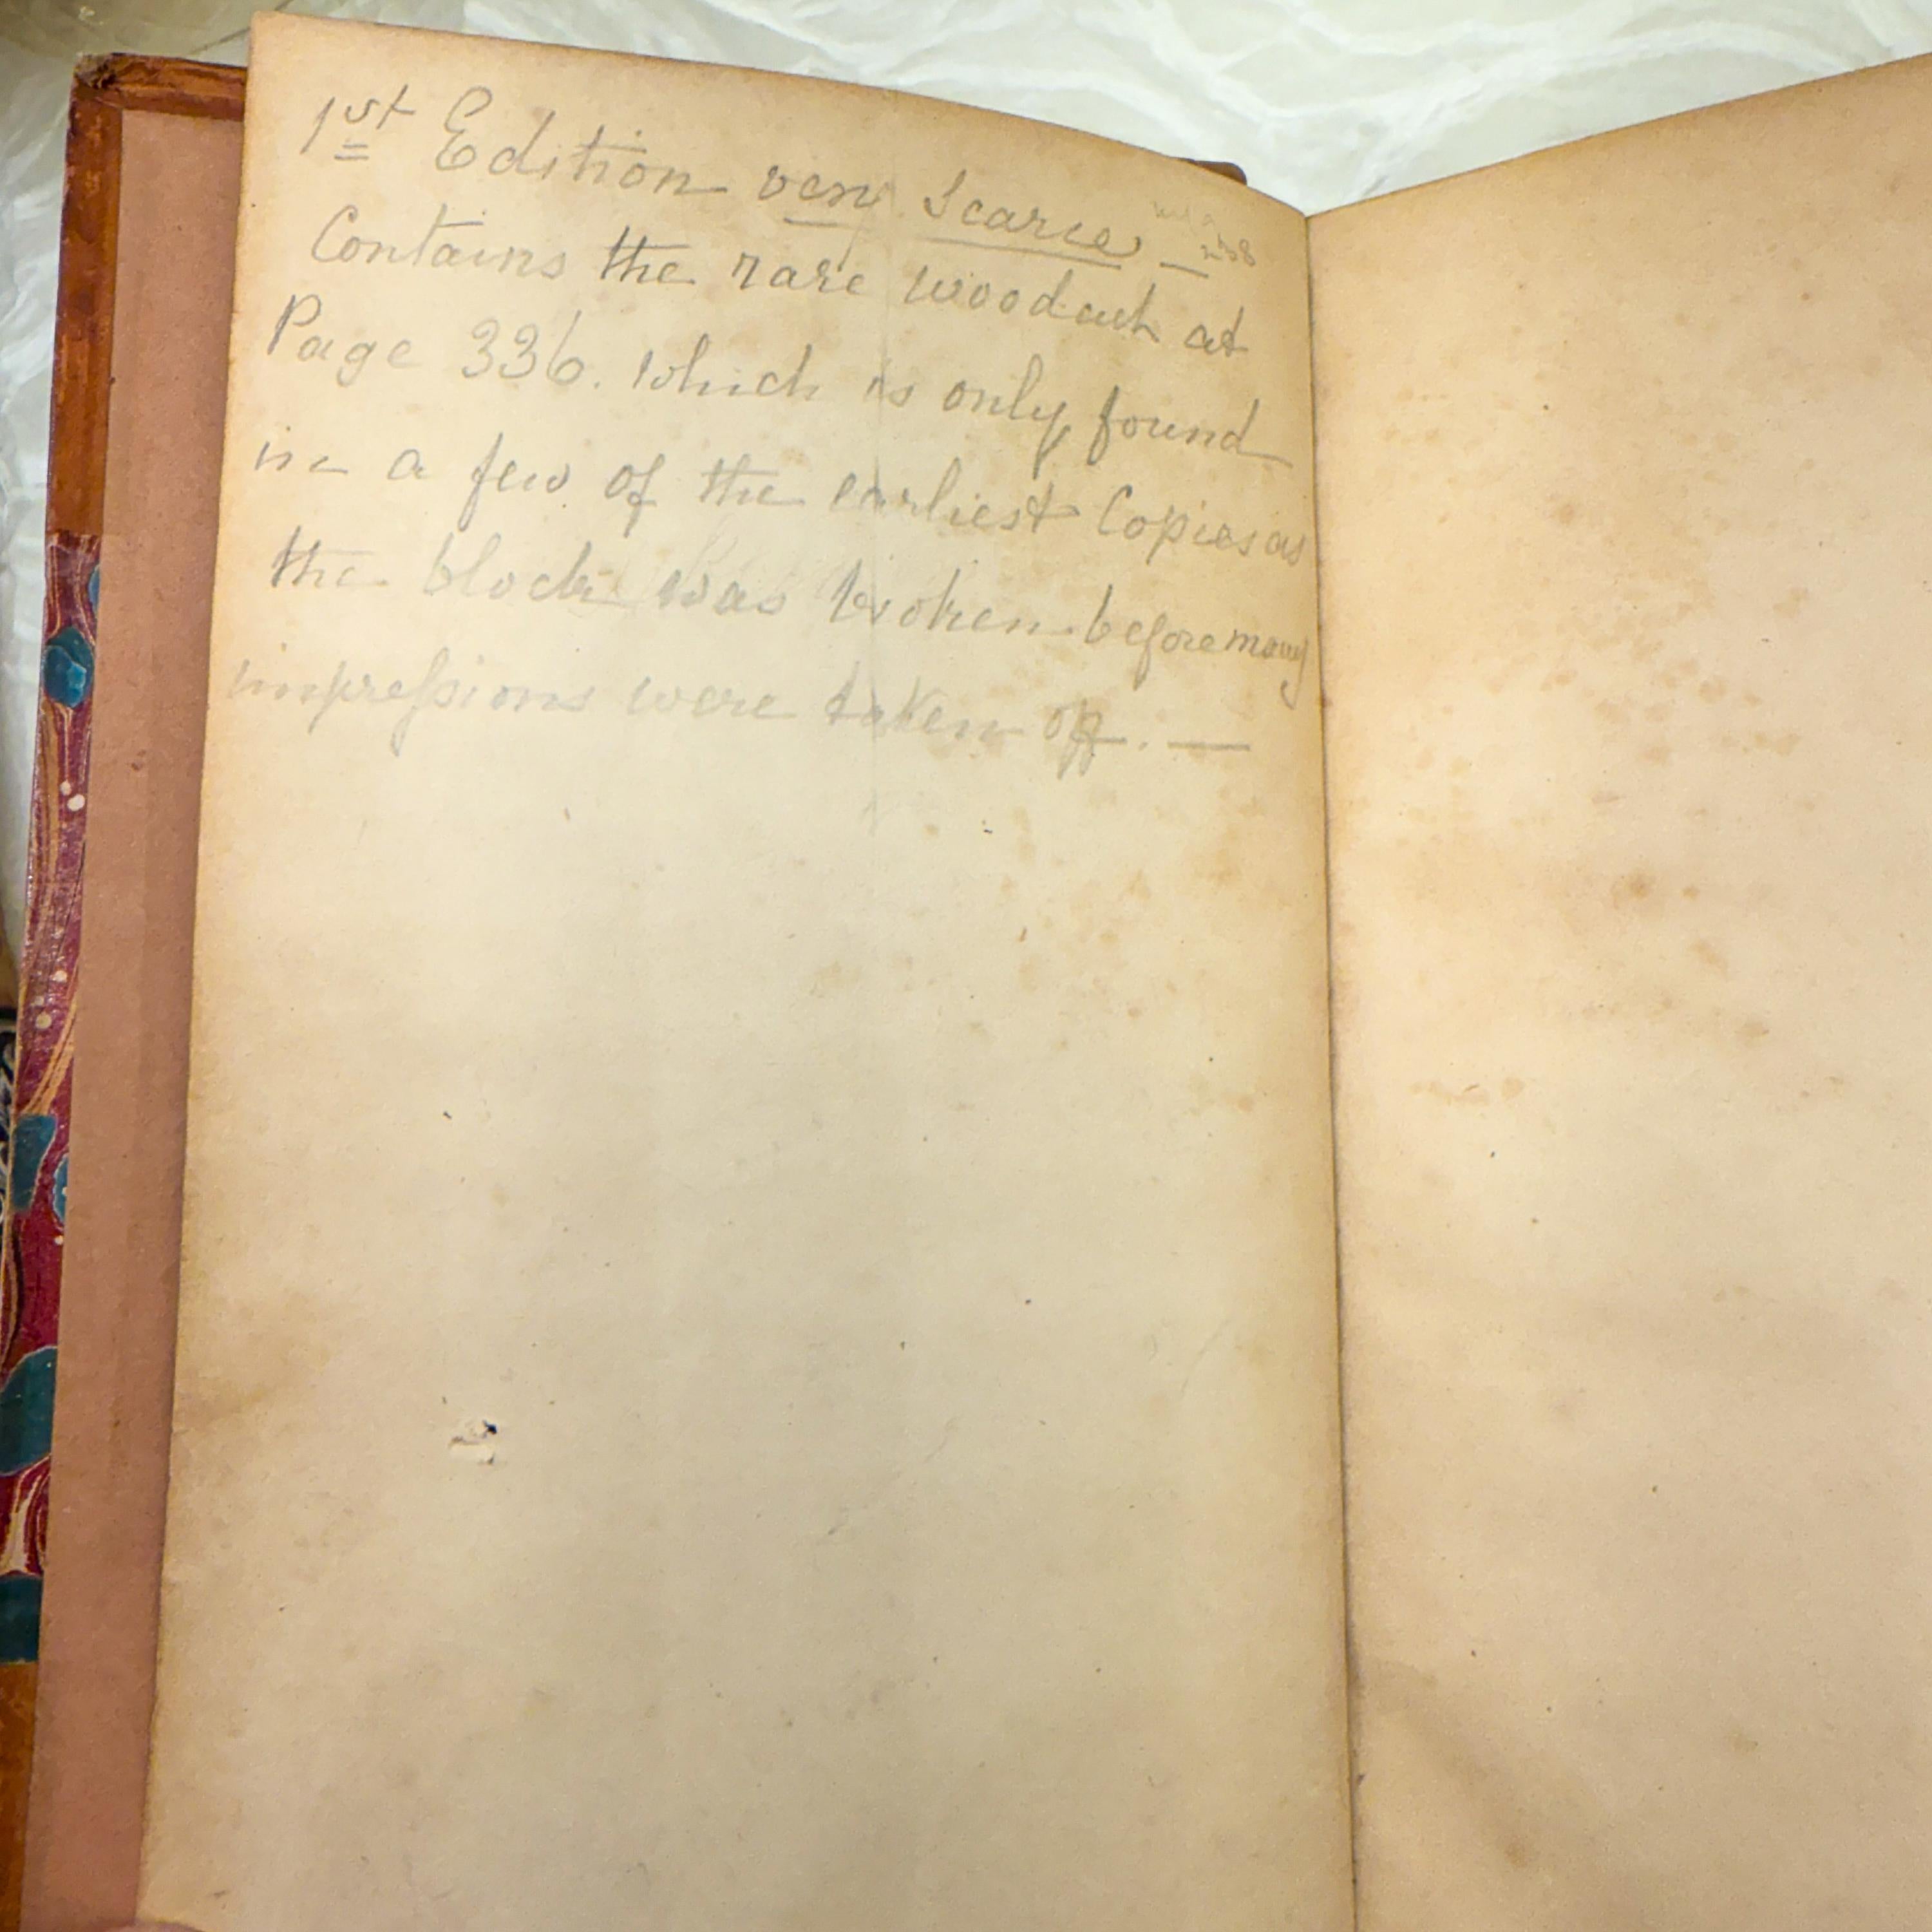 1st Edition very Scarce —
Contains the rare woodcut at
Page 336. which is only found
in a few of the earliest Copies as
the block was broken before many
impressions were taken off. —